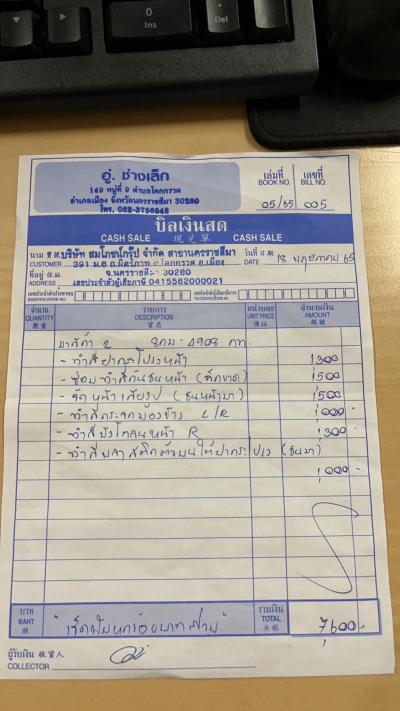 0
Ins
Del
อู่. ช่างเล็ก
149 หมู่ที่ 9 ตำบลโคกกรวด
อำเภอเมือง จังหวัดนครราชสีมา 30280
เล่มที่ เลขที่
BOOK NO. BILL NO.
05/65 005
บิลเงินสด
CASH SALE 現兌單 CASH SALE
นาม บริษัท สมโภชน์กรุ๊ป จำกัด สาขานครราชสีมา วันที่
CUSTOMER 391 ม.6 ถ.มิตรภาพ ต.โคกกรวด อ.เมือง DATE 18 พฤษภาคม 65
ที่อยู่ จ.นครราชสีมา 30280
ADDRESS เลขประจำตัวผู้เสียภาษี 0415562000021
จำนวน รายการ หน่วยละ จำนวนเงิน
QUANTITY DESCRIPTION UNIT PRICE AMOUNT
數量 貨名 備註 銀額
มาสด้า 2 ทะเบียน
- ทำสีฝากระโปรงหน้า 1300
- ซ่อม-ทำสีกันชนหน้า (ฉีกขาด) 1500
- หน้า (ชนหน้ามา) 1500
- ทำสีกระจกมองข้าง L/R 1000
- ทำสีบังโคลนหน้า R 1300
- ทำสีพลาสติกตัวบนใต้ฝากระโปรง (ชนมา)
1000
บาท รวมเงิน
BAHT TOTAL
銖 共銀
"เจ็ดพันหกร้อยบาทถ้วน" 7600.-
ผู้รับเงิน 收貨人
COLLECTOR